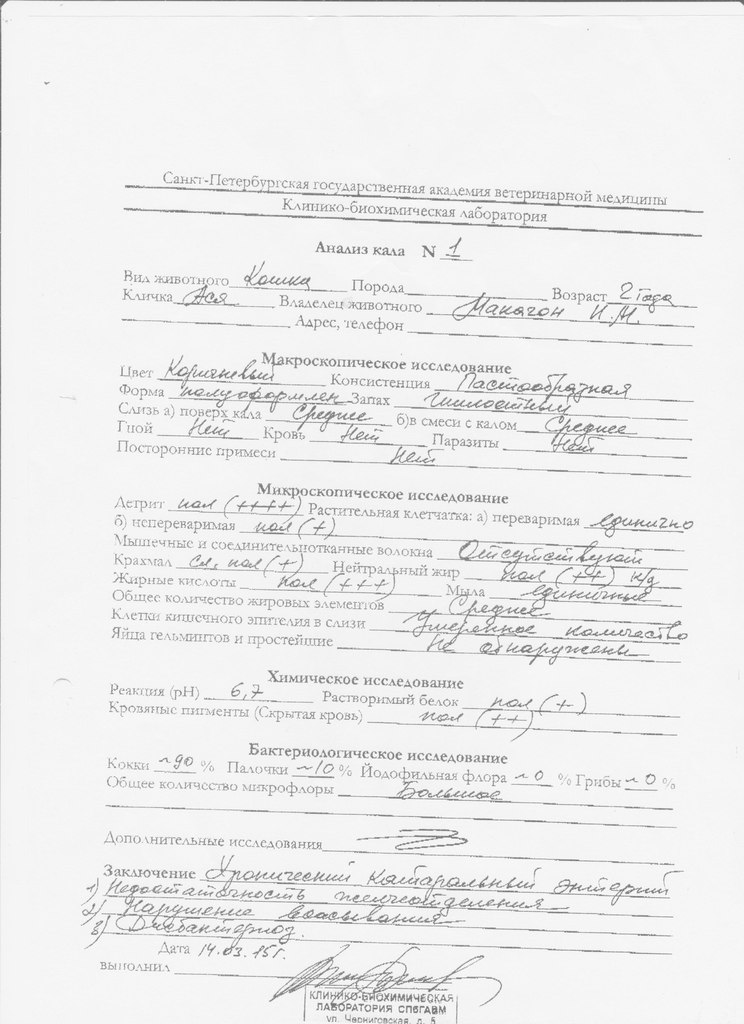 Санкт-Петербургская государственная академия ветеринарной медицины
Клинико-биохимическая лаборатория
Анализ кала N 1
Вид животного Кошка Порода Возраст 2 года
Кличка Ася Владелец животного Макагон И.М.
Адрес, телефон
Макроскопическое исследование
Цвет Коричневый Консистенция Пастообразная
Форма полуоформлен Запах Гнилостный
Слизь а) поверх кала Среднее б)в смеси с калом Среднее
Гной Нет Кровь Нет Паразиты Нет
Посторонние примеси Нет
Микроскопическое исследование
Детрит пол (++++) Растительная клетчатка: а) переваримая единично
б) непереваримая пол (+)
Мышечные и соединительнотканные волокна Отсутствуют
Крахмал сл, пол (+) Нейтральный жир пол (++) н/д
Жирные кислоты пол (+++) Мыла единичные
Общее количество жировых элементов Среднее
Клетки кишечного эпителия в слизи Умеренное количество
Яйца гельминтов и простейшие Не обнаружены
Химическое исследование
Реакция (pH) 6,7 Растворимый белок пол (+)
Кровяные пигменты (Скрытая кровь) пол (++)
Бактериологическое исследование
Кокки ~90 % Палочки ~10 % Йодофильная флора ~0 % Грибы ~0 %
Общее количество микрофлоры Большое
Дополнительные исследования
Заключение Хронический катаральный энтерит
1) Недостаточность желчеотделения
2) Нарушение всасывания
3) Дисбактериоз.
Дата 14.03.15г.
выполнил
КЛИНИКО-БИОХИМИЧЕСКАЯ
ЛАБОРАТОРИЯ СПбГАВМ
ул. Черниговская, д. 5